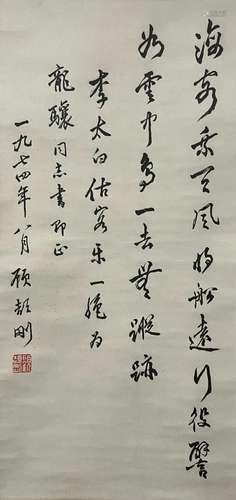 海客乘天风将船远行役譬
如云中鸟一去无踪迹
李太白估客乐一绝为
龙骧同志书即正
一九七四年八月 顾颉刚